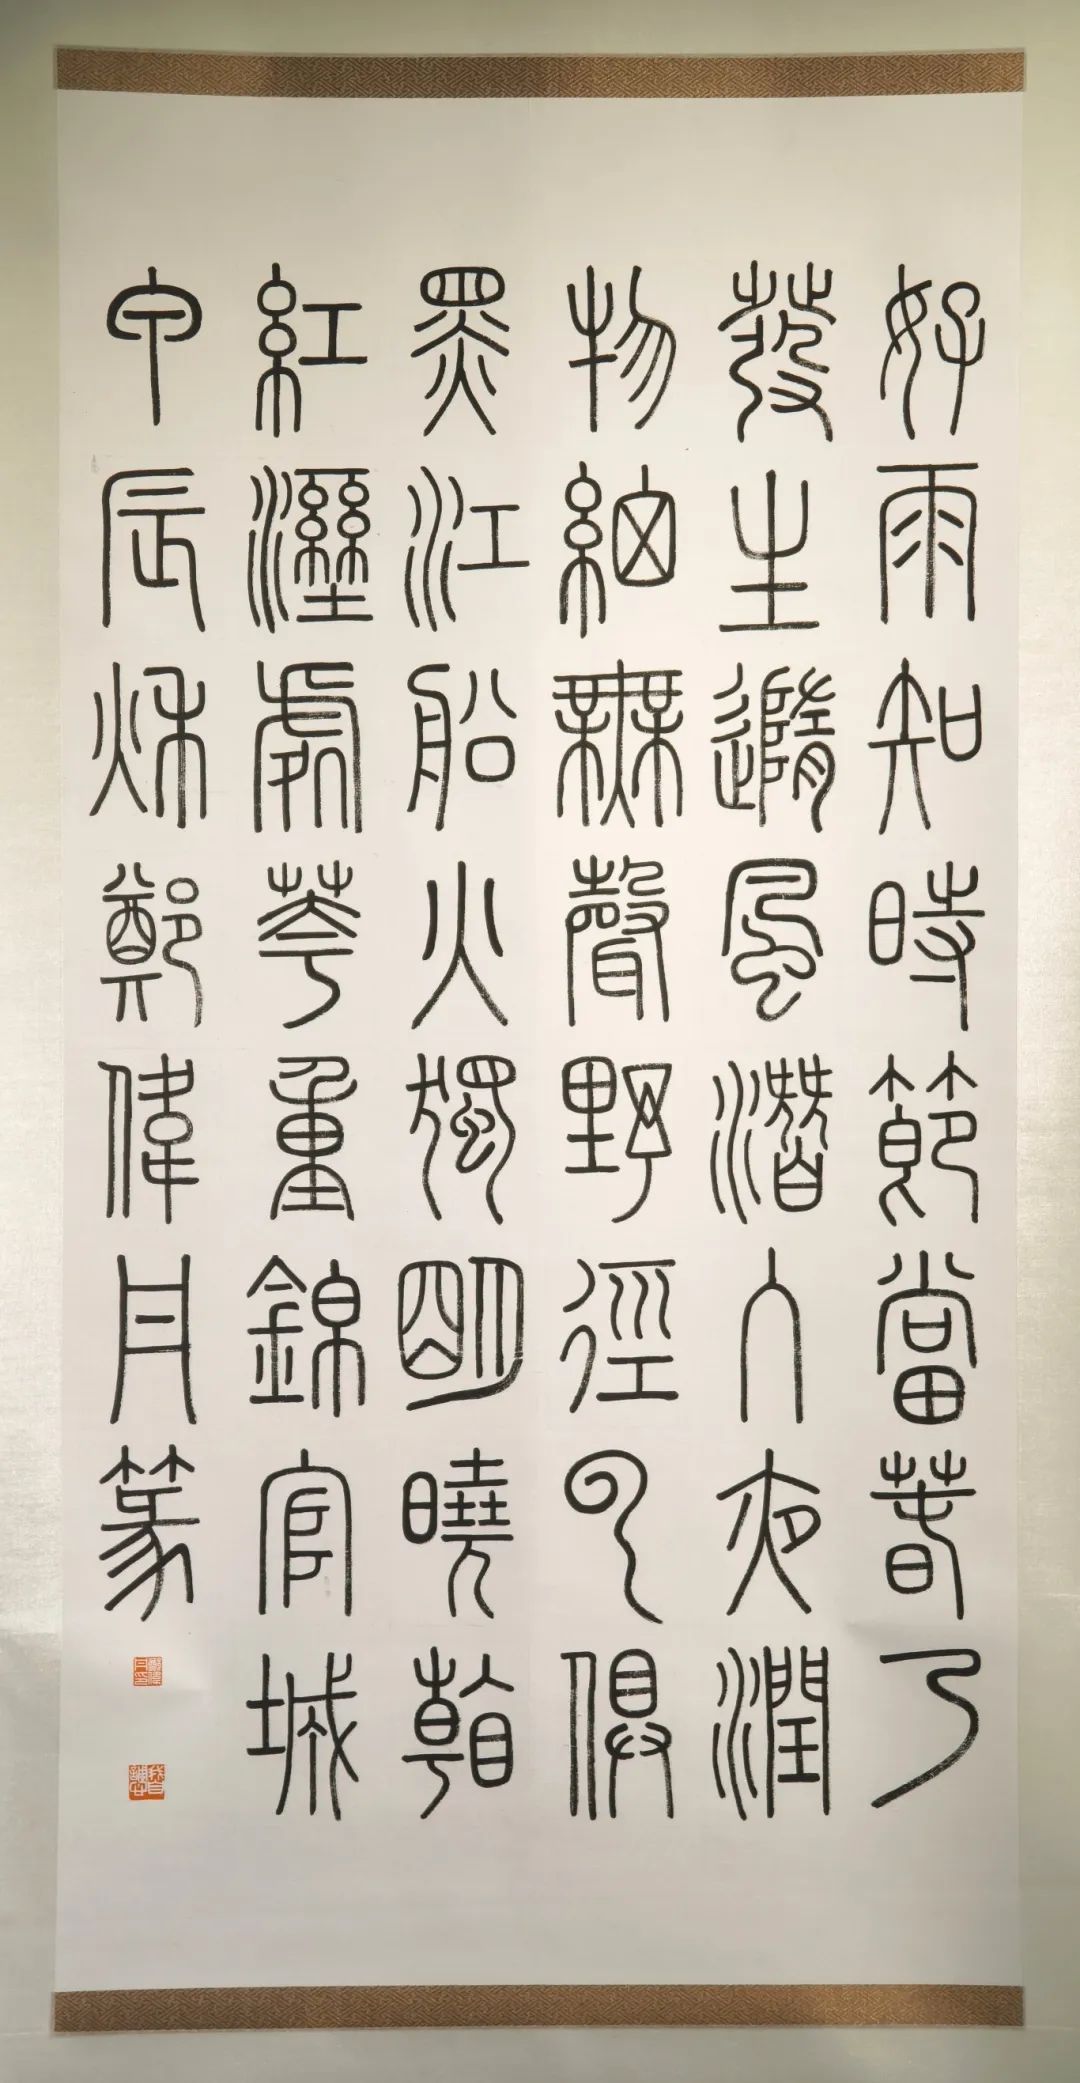 好雨知時節當春乃
發生隨風潛入夜潤
物細無聲野徑雲俱
黑江船火獨明曉看
紅溼處花重錦官城
甲辰秋鄭偉丹篆